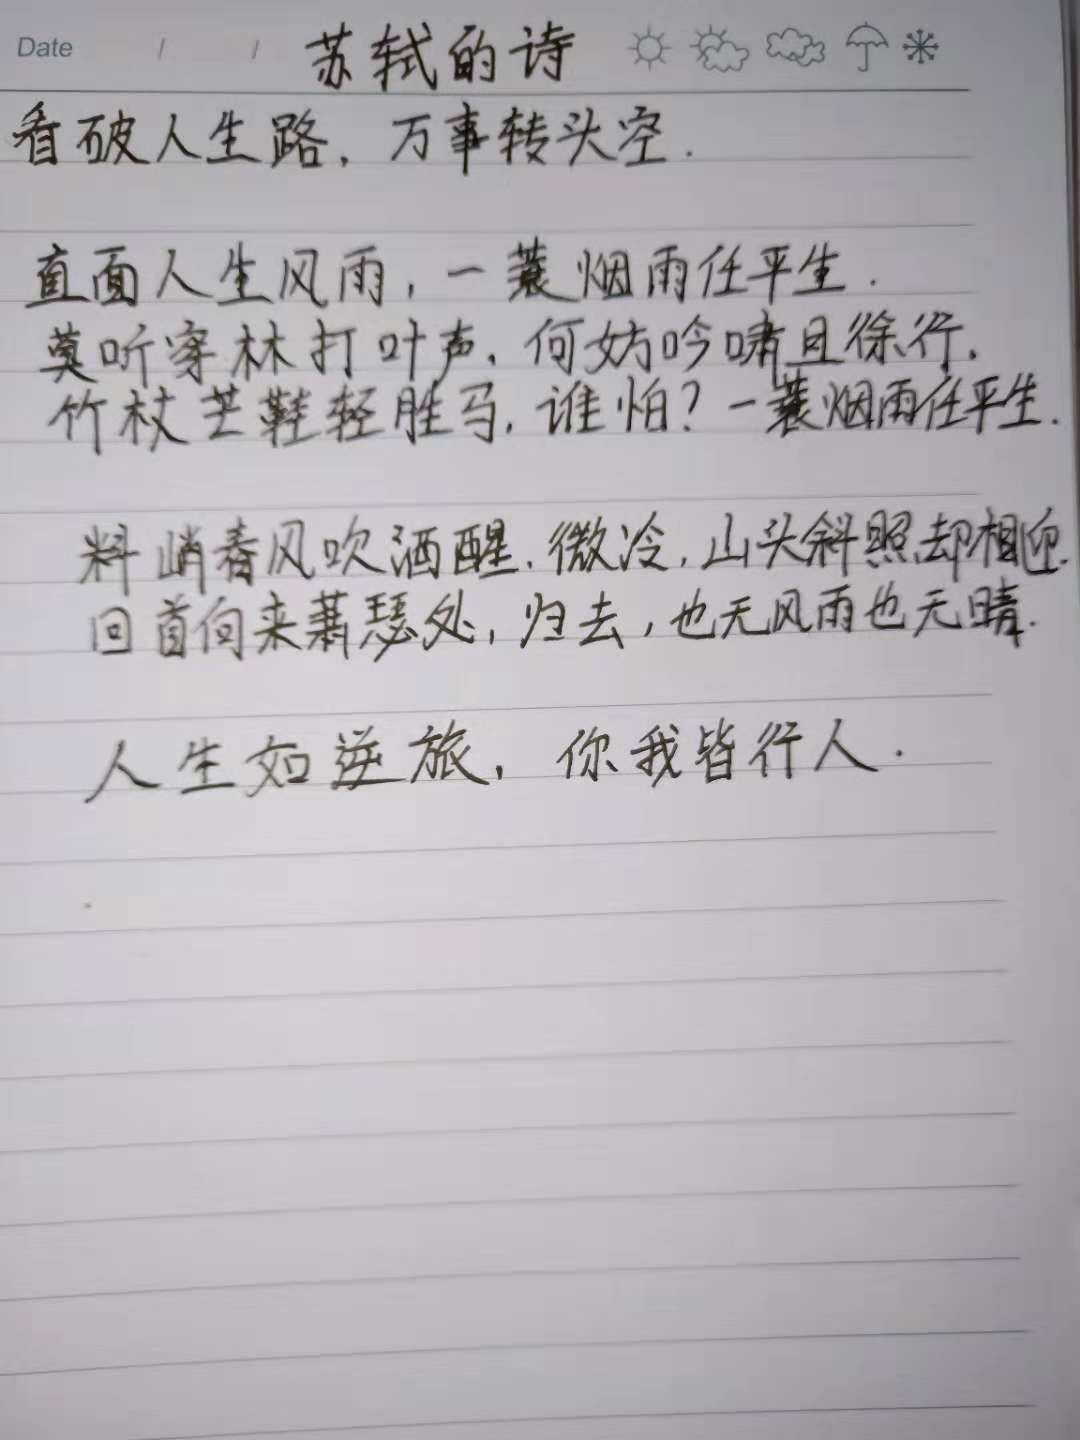 Date / / 苏轼的诗
看破人生路，万事转头空．
直面人生风雨，一蓑烟雨任平生．
莫听穿林打叶声，何妨吟啸且徐行．
竹杖芒鞋轻胜马，谁怕？一蓑烟雨任平生．
料峭春风吹酒醒．微冷，山头斜照却相迎．
回首向来萧瑟处，归去，也无风雨也无晴．
人生如逆旅，你我皆行人．